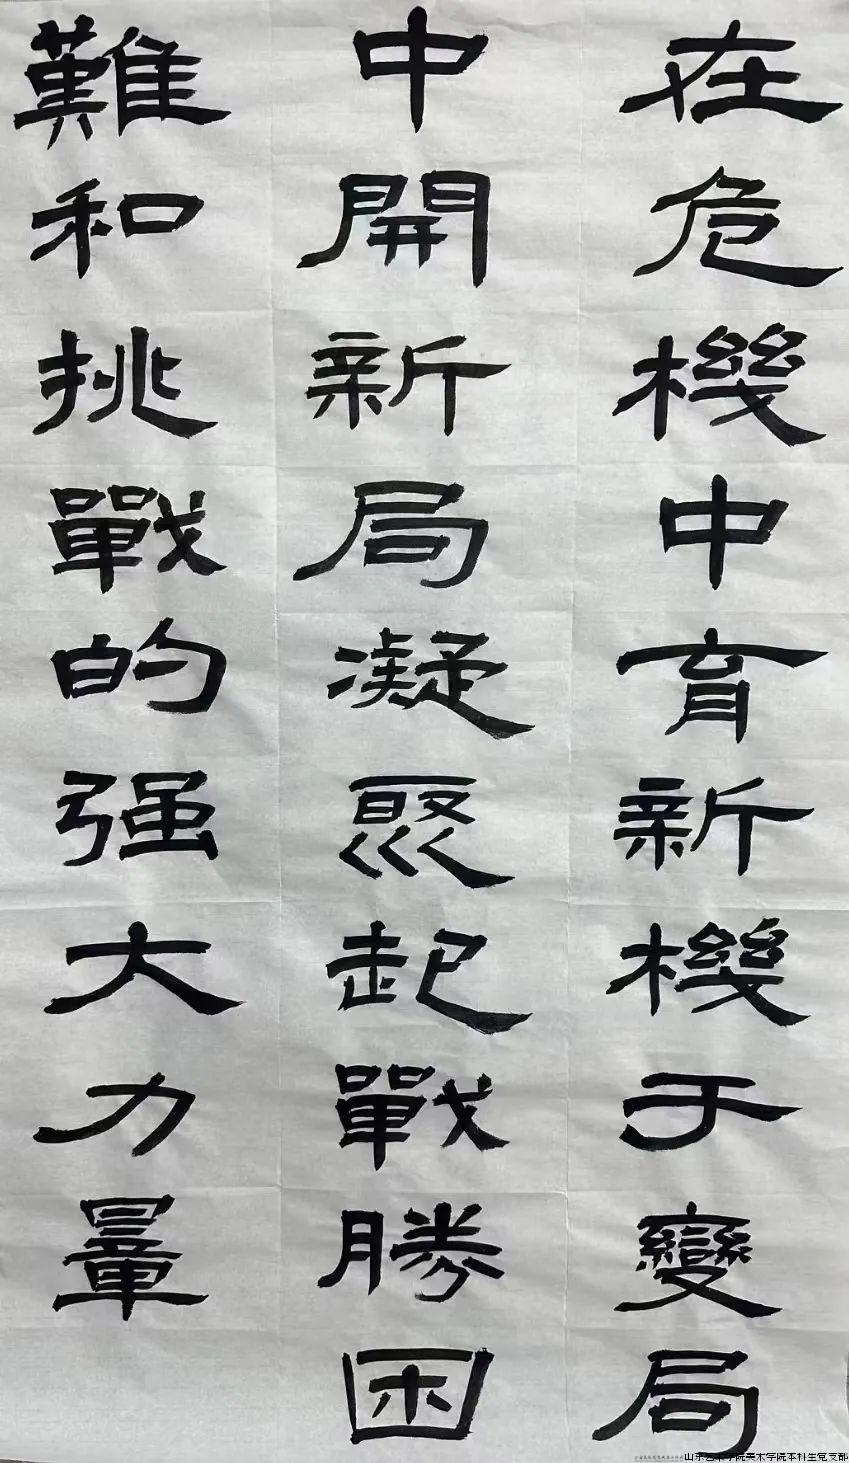 在危機中育新機于變局
中開新局凝聚起戰勝困
難和挑戰的强大力量
山东艺术学院美术学院本科生党支部